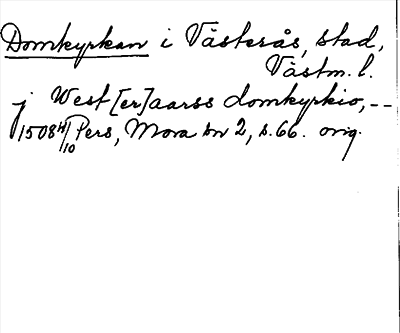 Domkyrkan i Västerås, stad,
Västm. l.
j West[er]aarss domkyrkio, --
1508 4/10 Pers, Mora sn 2, s. 66. orig.